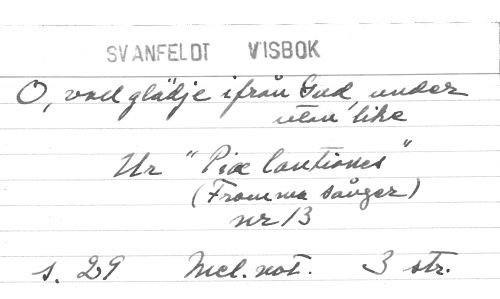 SVANFELDT VISBOK
O, vad glädje ifrån Gud, under
utan like
Ur "Piæ Cantiones"
(Fromma sånger)
nr 13
s. 29 Mel. not. 3 str.